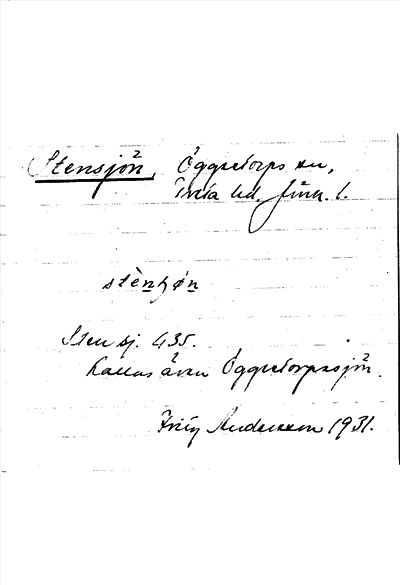 Stensjön, Öggestorps sn,
Tveta hd. Jönk. l.
stènʃøn
Stensj. 435.
Kallas även Öggestorpasjön.
Andersson 1931.